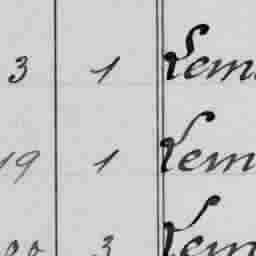 3 1 Lem
19 1 Lem
3 Lem